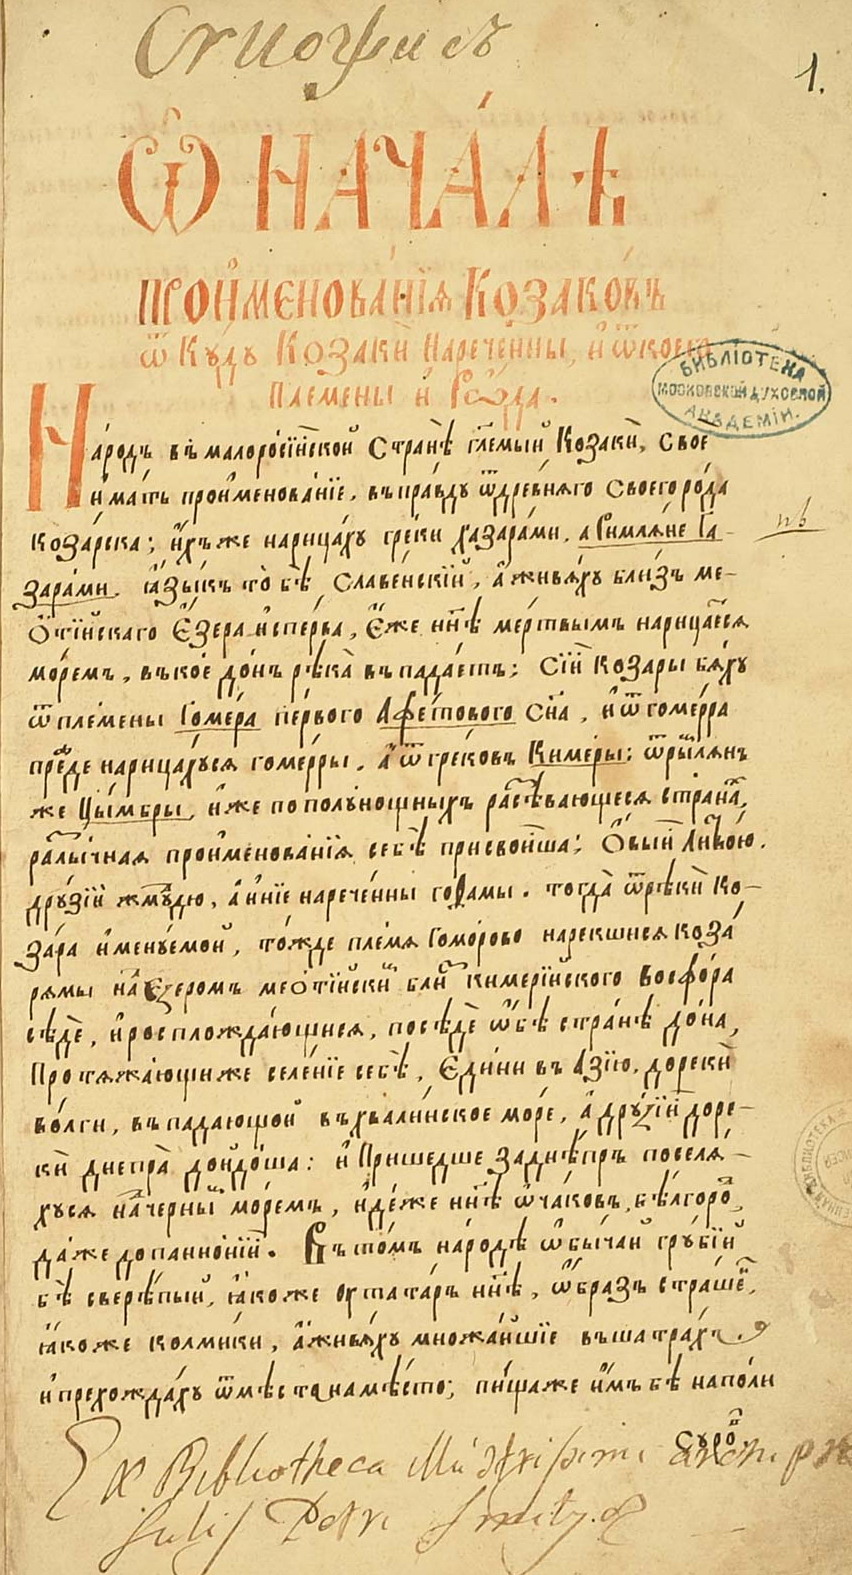 1.
Ѿ НАЧА́ЛѢ
ПРОИМЕНОВА́НЇѦ КОЗАКО́ВЪ
ѿ Кꙋдꙋ Козакѝ Нарече́нны, и҆ ѿкоегѡ
Племены и҆ Рѡ́да.
БИБЛІОТЕКА
МОСКОВСКОЙ ДУХОВНОЙ
АКАДЕМІИ.
На́родъ въ малоросі́йской Странѣ̀ гл҃емый Козакѝ, Свое
и҆ма́ть прои҆менова́нїе, въпра́вдꙋ ѿдре́внѧго Своегоро́да
коза́рска; и҆́хъже нарица́хꙋ гре́ки хазара́ми, а Римлѧ́не Га-
зара́ми. ꙗ҆зы́къ то̀ бѣ̀ Славе́нскїй, а҆ живѧ́хꙋ бли́зъ ме-
ѻ҆ті́йскаго Є҆́зера и҆спе́рва, Є҆́же нн҃ѣ ме́ртвымъ нарица́есѧ
мо́ремъ, въкое́ до́нъ рѣка̀ въпада́етъ; Сїѝ козары бѧ́хꙋ
ѿ пле́мены Гоме́ра пе́рвого Афе́тового Сн҃а, и҆ ѿ гоме́рра
пре́жде нарица́хꙋсѧ гоме́рры, а҆ ѿ гре́ковъ Киме́ры; ѿ ри́млѧнъ
же Цы́мбры, и҆́же по полꙋ́нощныхъ расѣва́ющесѧ страна́х,
разли́чнаѧ прои҆менова́нїѧ себѣ̀ присвои́ша; Ѻ҆́выи Литво́ю,
дрꙋ́зїи жмꙋ́дю, а҆ и҆нїе нарече́нны го́ѳамы. тогда̀ ѿ рѣкѝ Ко-
за́ра и҆менꙋ́емой, то́жде пле́мѧ Гоме́рово нарекшиесѧ коза́
рѧмы над є҆́зеромъ меѻті́йским близ кимері́йского Восфо́ра
сѣ́дѐ, и҆ росплождáющиисѧ, посѣ́дѐ ѻ҆́бѣ странѣ̀ до́на,
Протѧжа́ющиже селе́нїе себѣ̀, Є҆ди́ни въ А́зїю, дорекѝ
во́лги, въпадающой въ хвали́нское мо́ре, а҆ дрꙋ́зїи доре-
кѝ днепра̀ дойдо́ша: и҆ Прише́дше заднѣ́пръ поселѧ́-
хꙋсѧ над че́рным мо́ремъ, и҆дѣ́же нн҃ѣ ѻ҆ча́ковъ, бѣ́лгород,
да́же до панно́нїи. Въ то́мъ наро́дѣ ѻ҆бы́чай грꙋ́бїй
бѣ̀ сверѣ́пый, ꙗ҆́коже ᲂу҆ тата́ръ нн҃ѣ, ѻ҆́бразъ стра́шен,
ꙗ҆́коже колмы́ки, а҆живѧ́хꙋ множа́йшїе въ шатра́хъ
и҆ прехожда́хꙋ ѿ мѣ́ста на мѣ́сто; пи́щаже и҆̀мъ бѣ̀ напо́ли
сꙋро
Ex Bibliotheca Illustrissimi
Petri